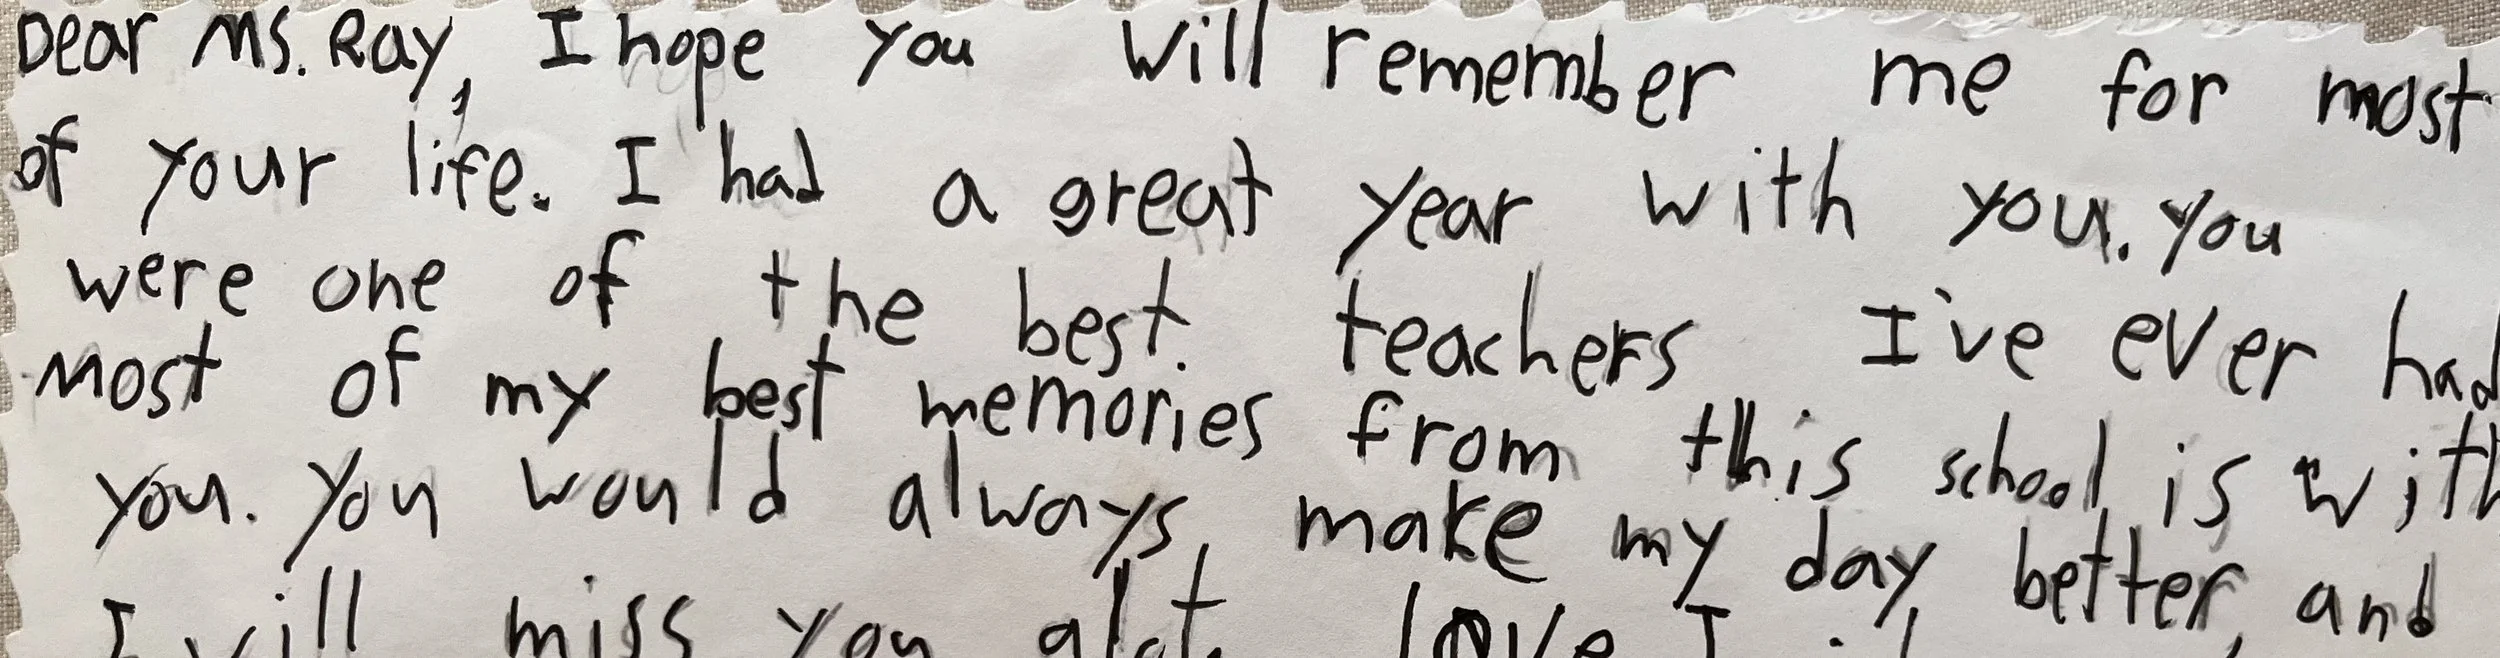 Dear Ms. Ray, I hope you will remember me for most
of your life. I had a great year with you. you
were one of the best teachers I've ever had
most of my best memories from this school is with
you. you would always make my day better, and
I will miss you alot. love